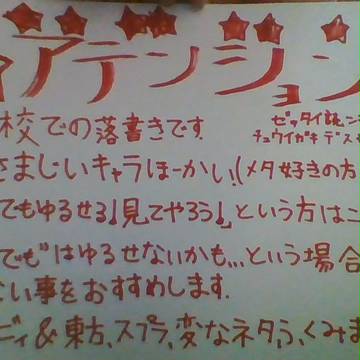 アテンション
ゼッタイ読ン
チュウイガキデス
校での落書きです
さまじいキャラほーかい!(メタ好きの方
でもゆるせる♩見てやろう♩という方は
でも"はゆるせないかも,,,という場合
い事をおすすめします.
ディ&東方、スプラ、変なネタふ、くみま